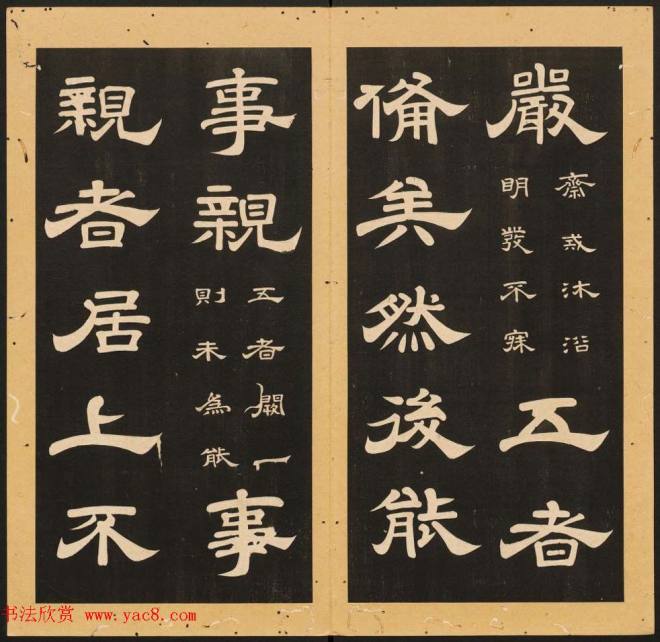 嚴
齋戒沐浴
明發不寐
五者
備矣然後能
事親
五者闕一
則未為能
事
親者居上不
书法欣赏 www.yac8.com